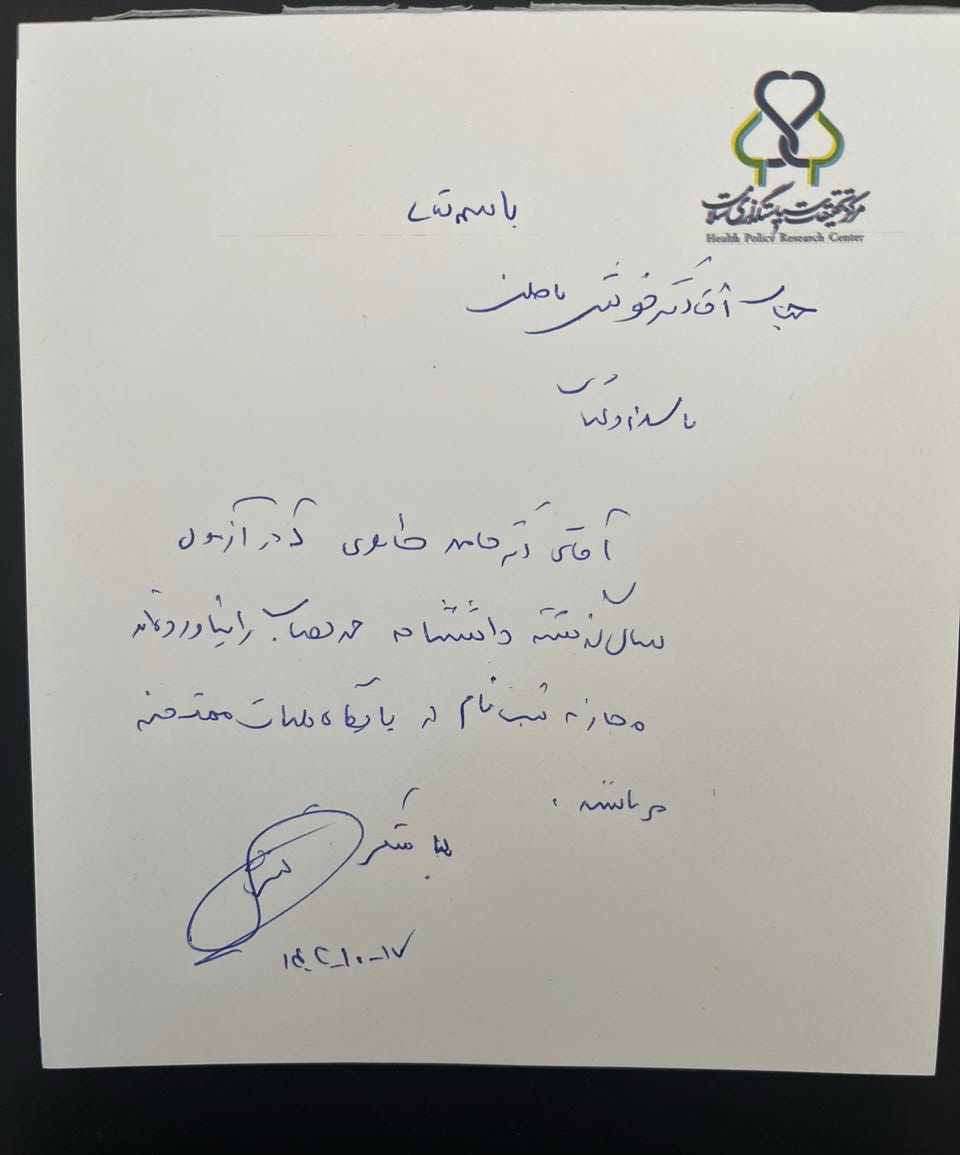 مرکز تحقیقات سیاستگذاری سلامت
Health Policy Research Center
باسمه تعالی
جناب آقای دکتر خوش باطن
با سلام و
آقای دکتر حامد که در آزمون
سال گذشته دانشنامه حد نصاب را نیاورده‌اند
مجاز به ثبت نام در
می باشند.
با تشکر
۱۴۰۲-۱۰-۱۷